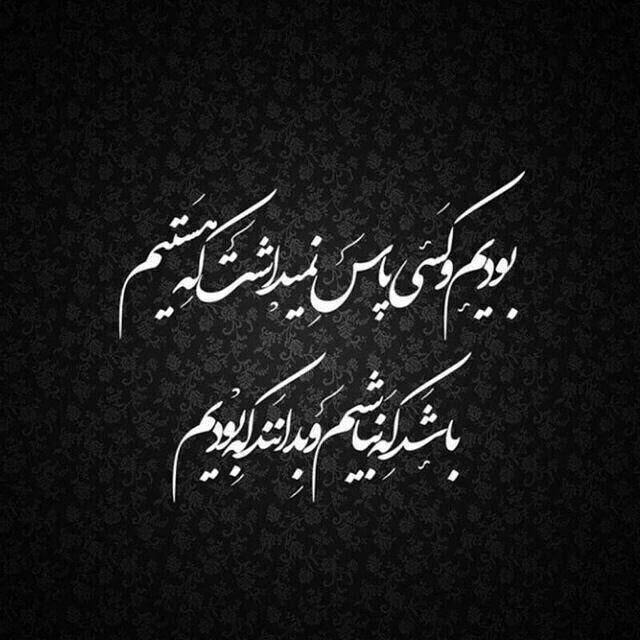 بودیم و کسی پاس نمیداشت که هستیم
باشد که نباشیم و بدانند که بودیم